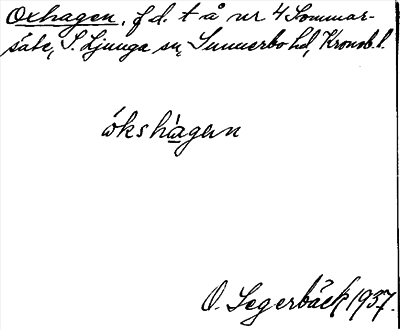 Oxhagen, f d. t å nr 4 Sommar-
säte, S. Ljunga sn, Sunnerbo hd, Kronob. l.
ókshàgen
O. Segerbäck 1937.